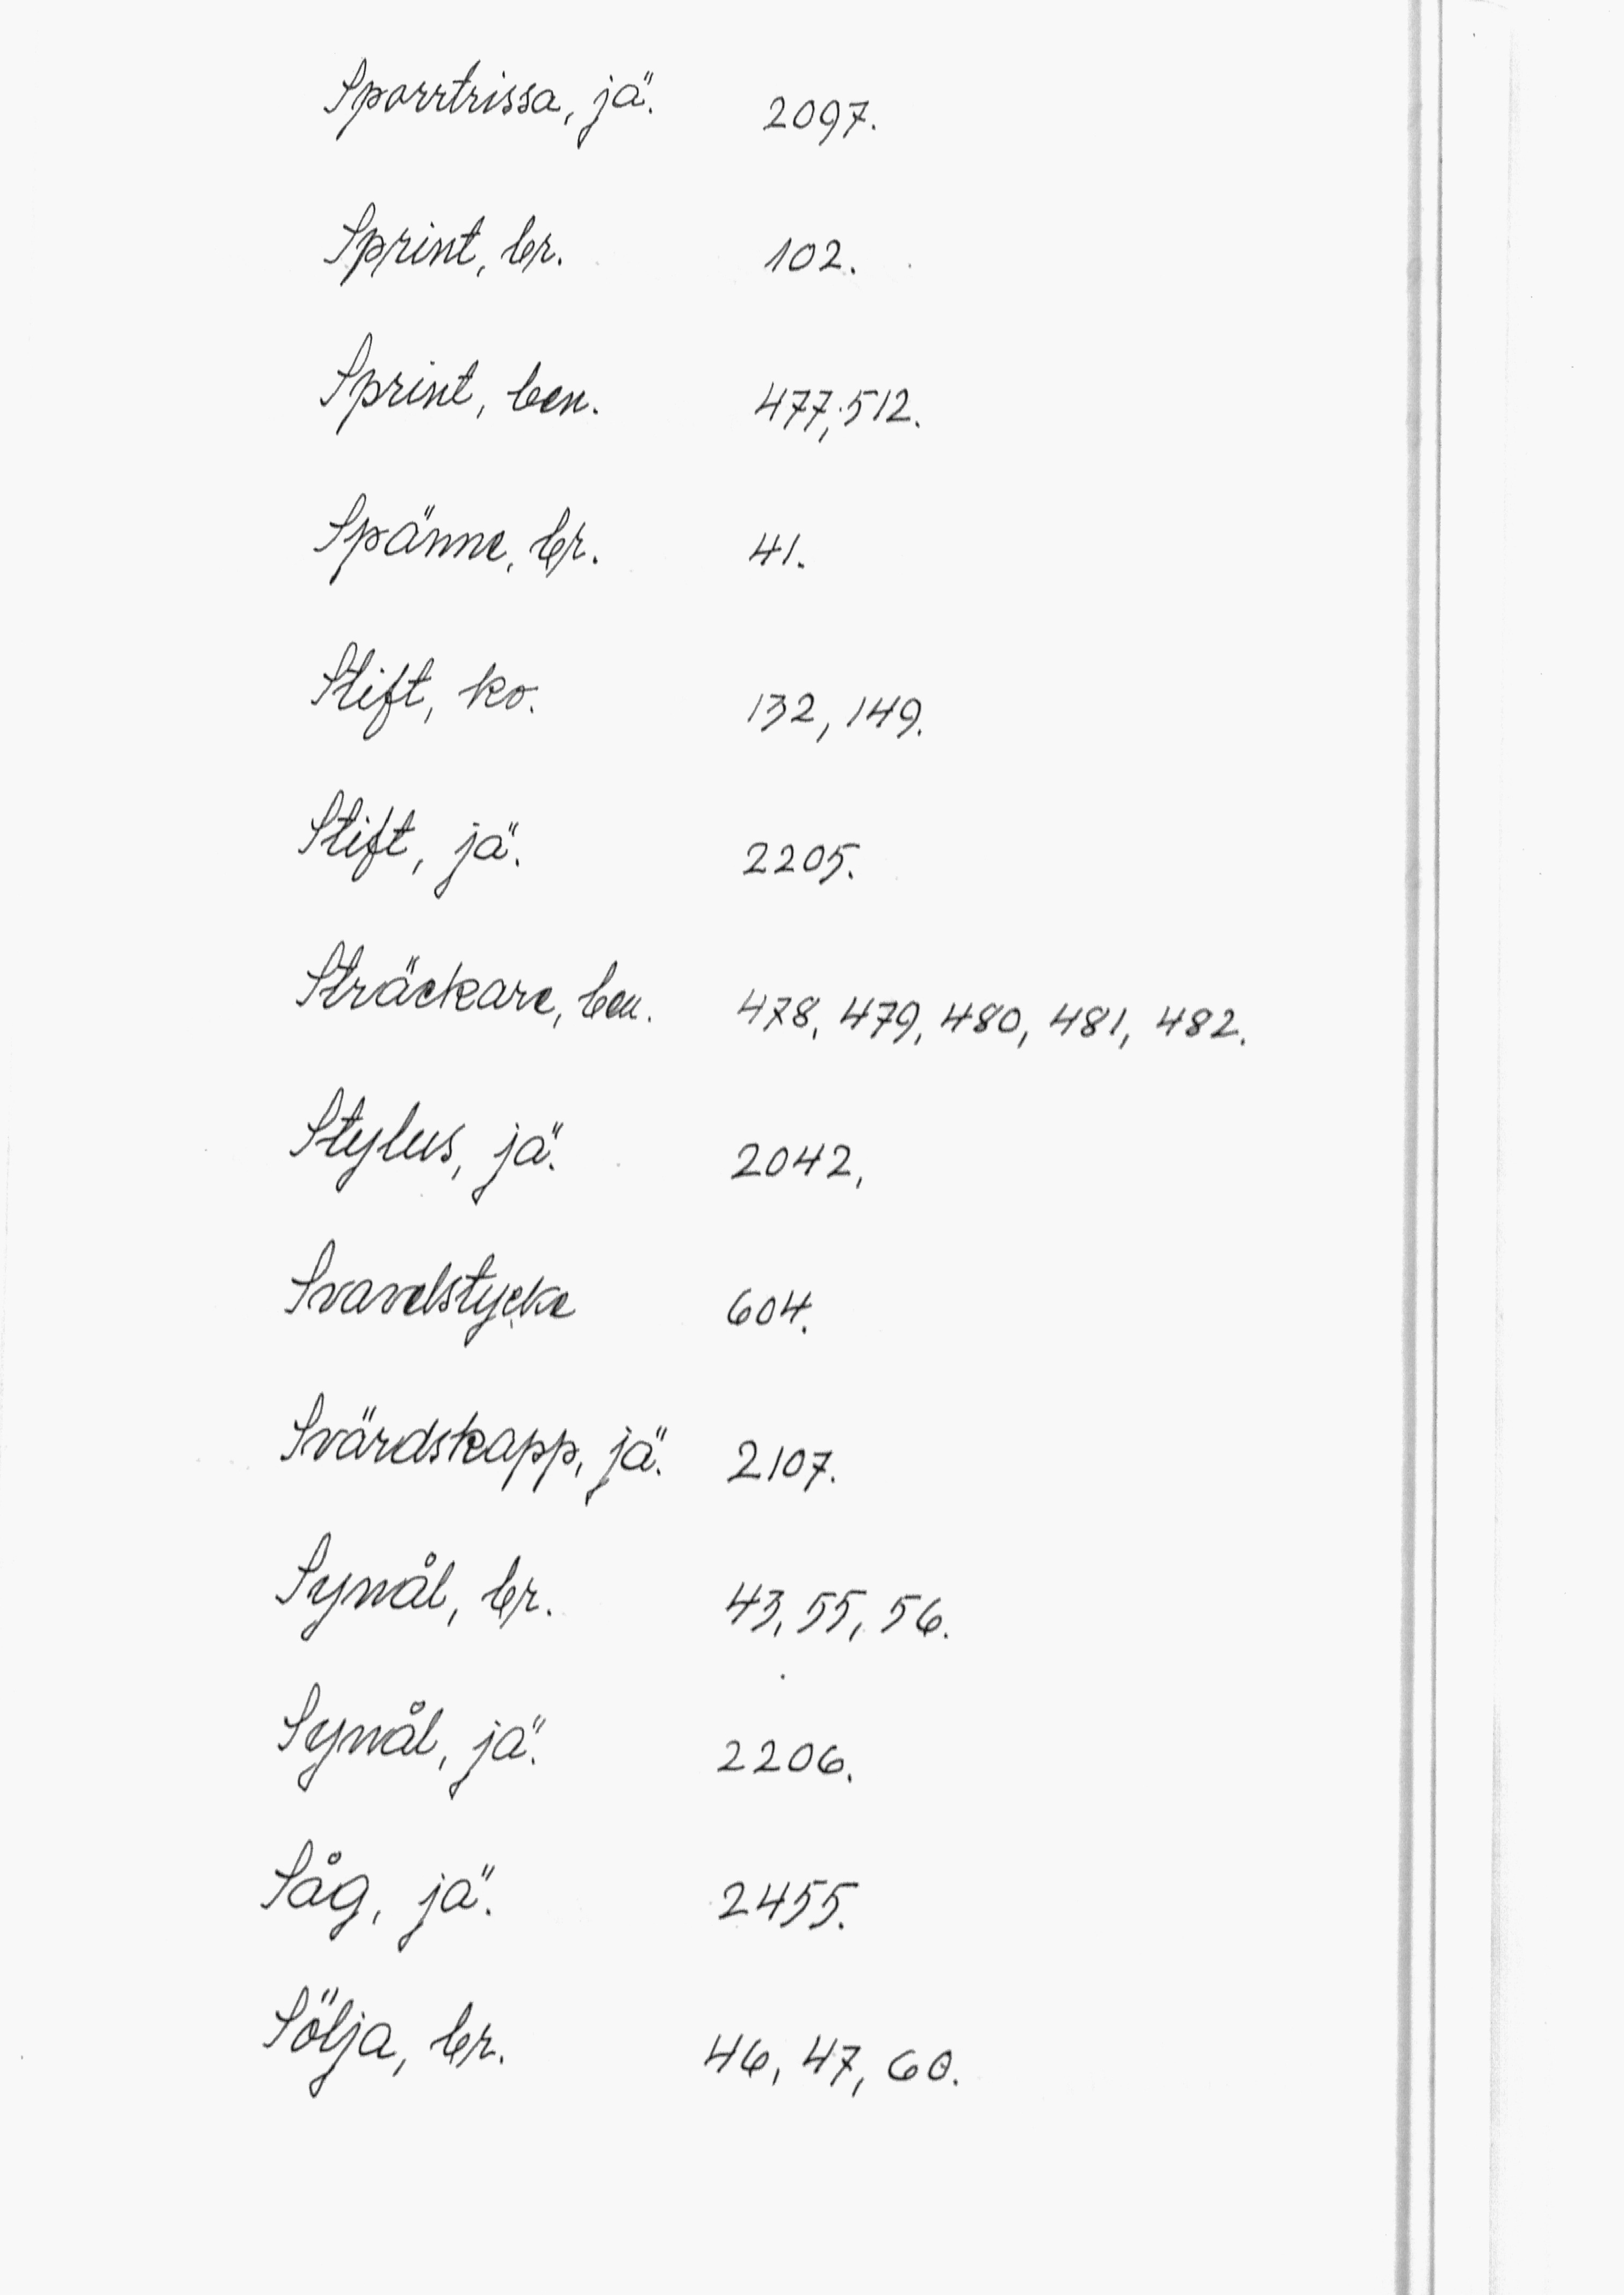 Sporrtrissa, jä. 2097.
Sprint, br. 102.
Sprint, ben. 477, 512.
Spänne, br. 41.
Stift, ko. 132, 149.
Stift, jä. 2205.
Sträckare, ben. 478, 479, 480, 481, 482.
Stylus, jä. 2042,
Svavelstycke 604.
Svärdskapp, jä. 2107.
Synål, br. 43, 55, 56.
Synål, jä. 2206.
Såg, jä. 2455.
Sölja, br. 46, 47, 60.